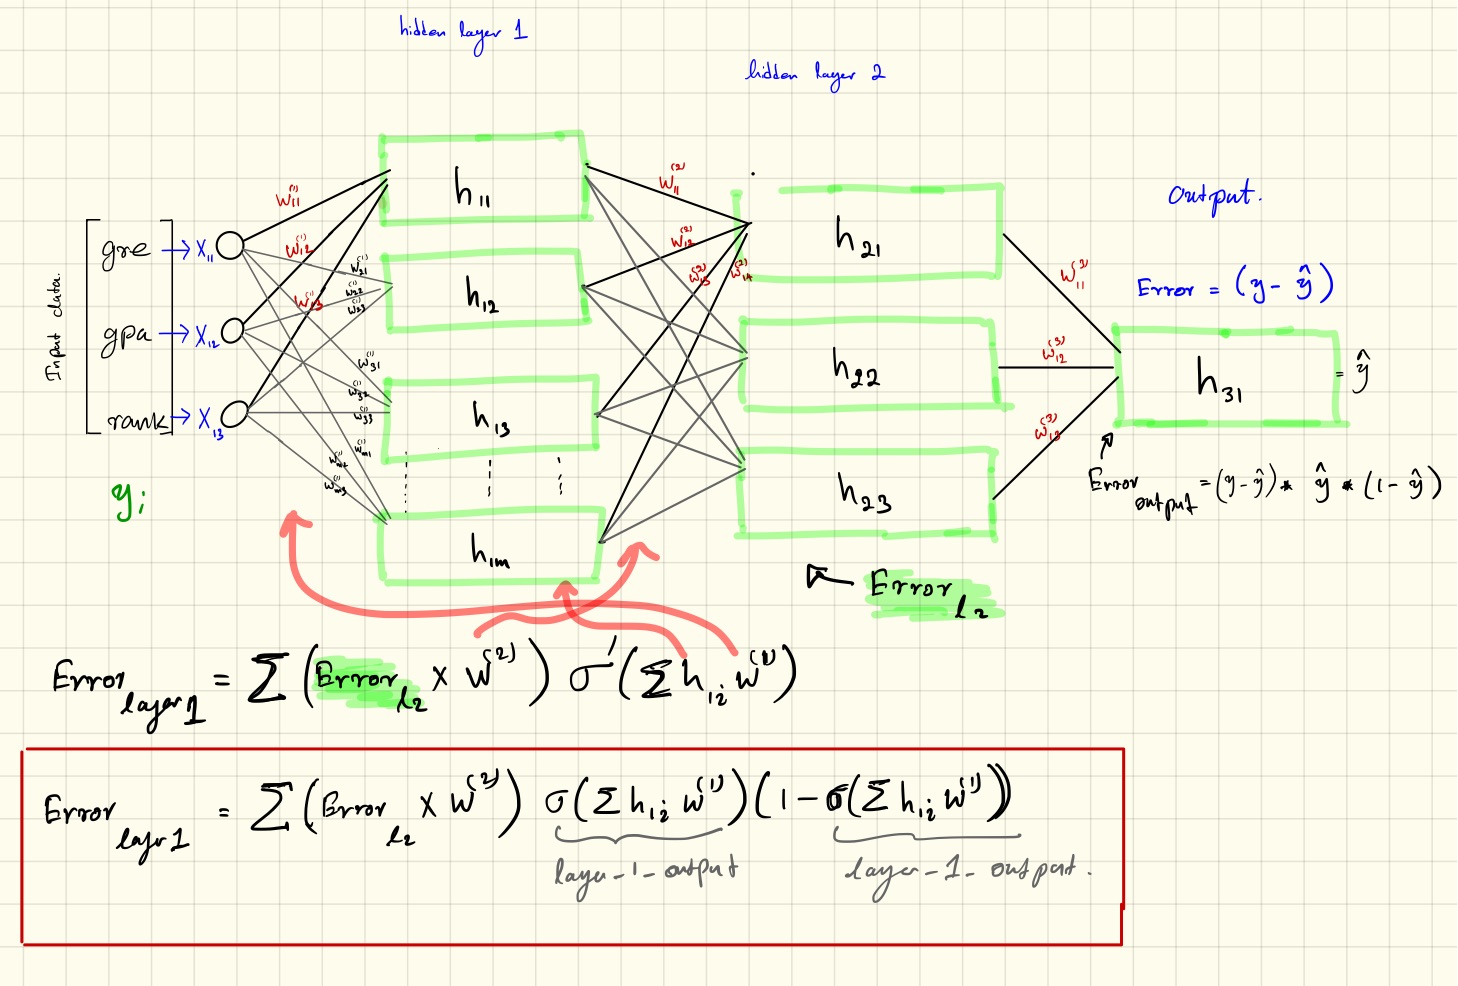 hidden layer 1
hidden layer 2
Output.
Input data.
gre → X₁₁
gpa → X₁₂
rank → X₁₃
yᵢ
W₁₁⁽¹⁾
W₁₂⁽¹⁾
W₁₃⁽¹⁾
W₂₁⁽¹⁾
W₂₂⁽¹⁾
W₂₃⁽¹⁾
W₃₁⁽¹⁾
W₃₂⁽¹⁾
W₃₃⁽¹⁾
Wₘ₁⁽¹⁾
Wₘ₂⁽¹⁾
Wₘ₃⁽¹⁾
h₁₁
h₁₂
h₁₃
h₁ₘ
W₁₁⁽²⁾
W₁₂⁽²⁾
W₁₃⁽²⁾
W₁₄⁽²⁾
h₂₁
h₂₂
h₂₃
W₁₂⁽³⁾
W₁₃⁽³⁾
Error = (y - ŷ)
h₃₁ = ŷ
Error output = (y-ŷ) * ŷ * (1-ŷ)
← Error l₂
Error layer 1 = Σ (Error l₂ × W⁽²⁾) σ′(Σ h₁ᵢ W⁽¹⁾)
Error layer 1 = Σ (Error l₂ × W⁽²⁾) σ(Σ h₁ᵢ W⁽¹⁾)(1-σ(Σ h₁ᵢ W⁽¹⁾))
layer-1-output layer-1-output.